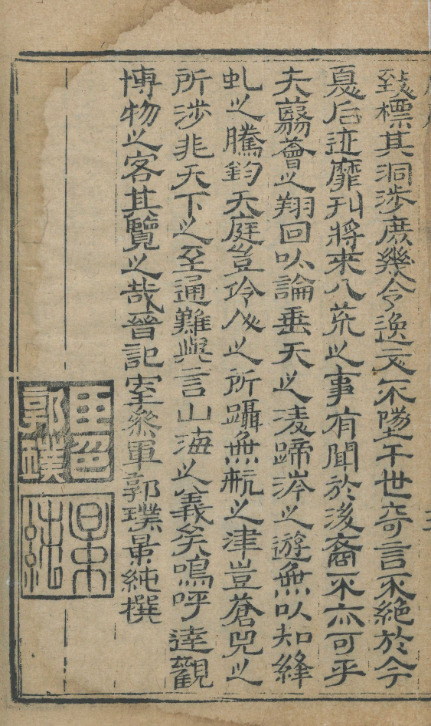 致標其洞涉庶幾令逸文不墜于世奇言不絕於今
夏后迹靡刊將來八荒之事有聞於後裔不亦可乎
夫蘙薈之翔回以論垂天之凌蹄涔之遊無以知絳
虬之騰鈞天庭豈伶人之所躡無航之津豈蒼兕之
所涉非天下之至通難與言山海之義矣嗚呼達觀
博物之客其覽之哉晉記室參軍郭璞景純撰
郭璞
景純